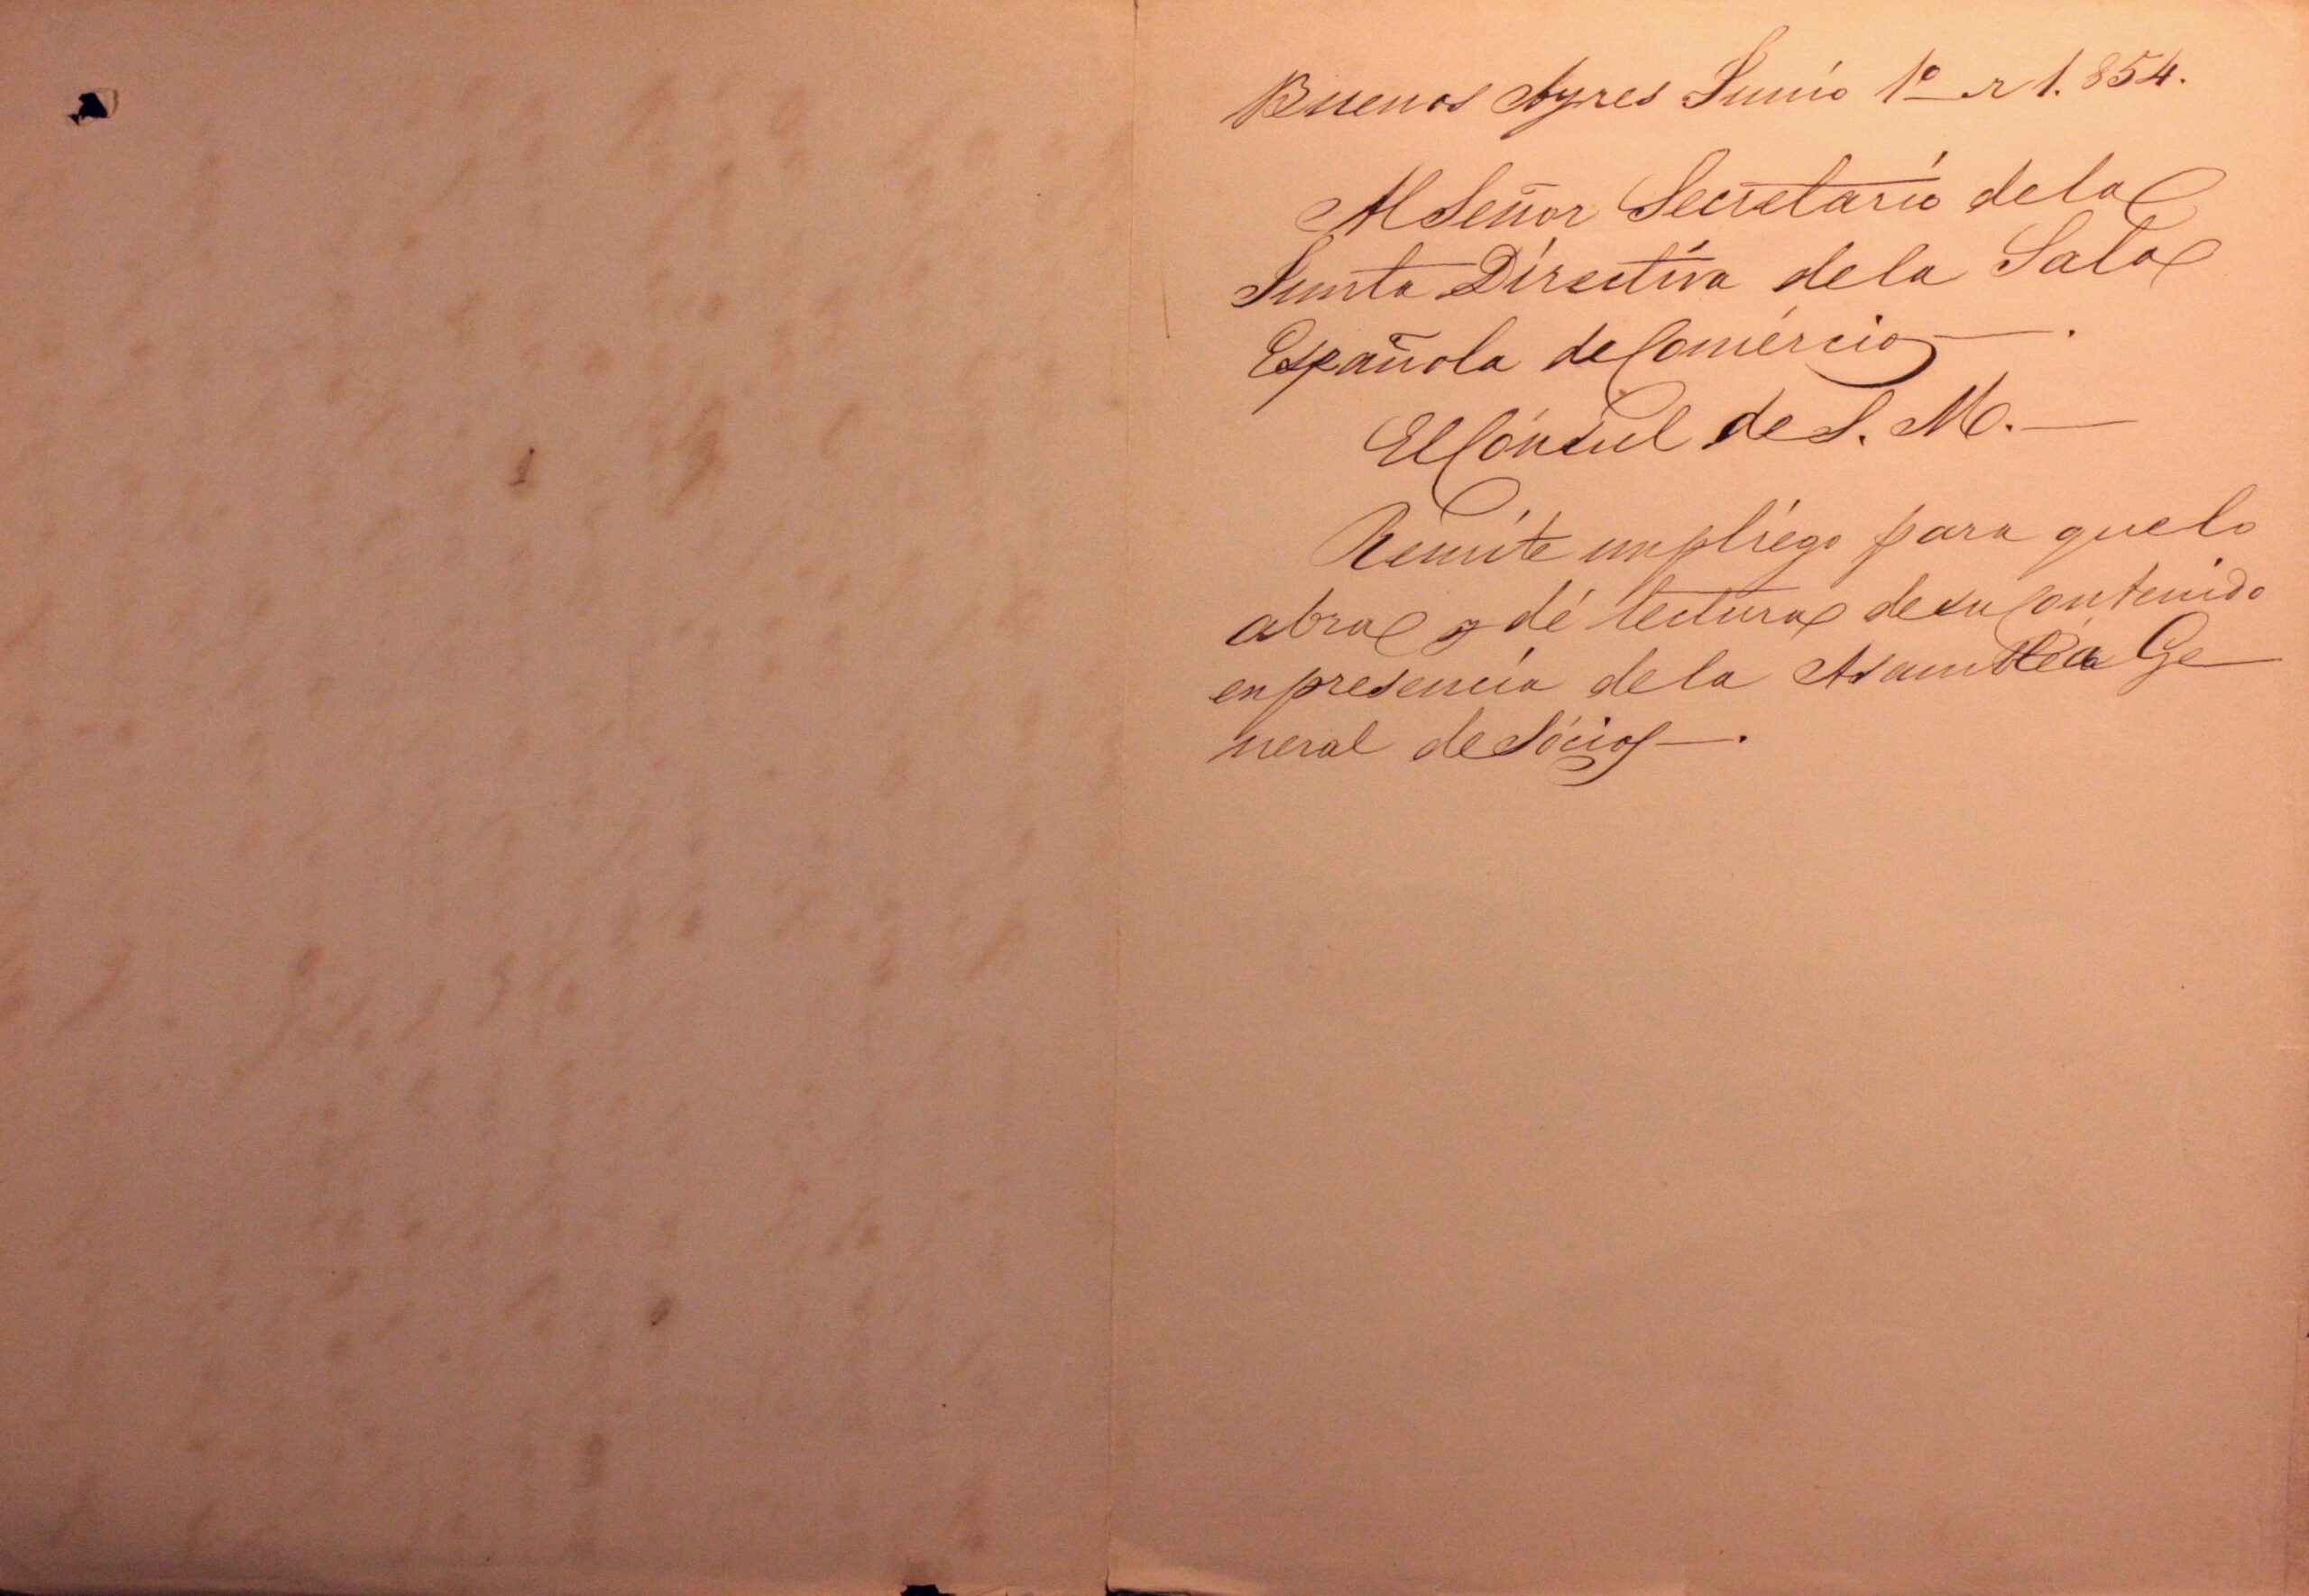 Buenos Ayres Junio 1º de 1.854.
Al Señor Secretario de la
Junta Directiva de la Sala
Española de Comércio—.
El Cónsul de S. M.—
Remite un pliego para que lo
abra y dé lectura de su contenido
en presencia de la Asambléa Ge
neral de Sócios—.